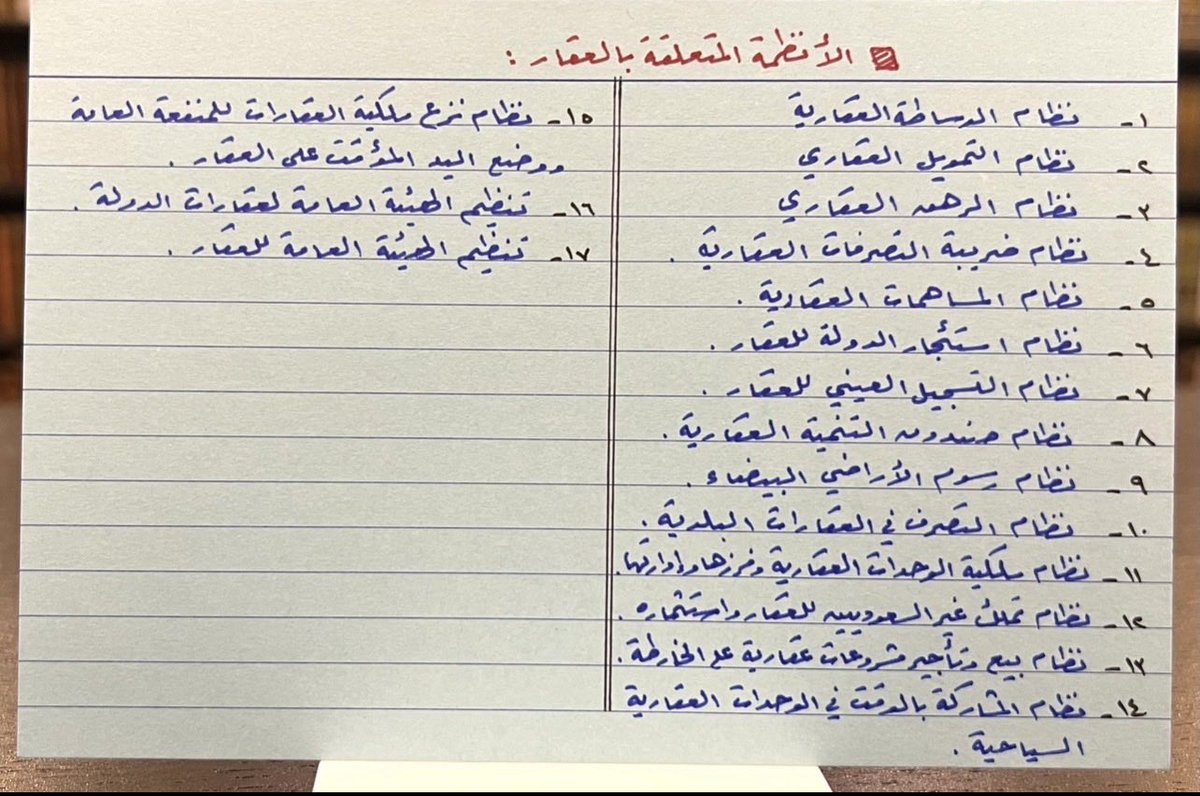 الأنظمة المتعلقة بالعقار :
١- نظام الوساطة العقارية
٢- نظام التمويل العقاري
٣- نظام الرهن العقاري
٤- نظام ضريبة التصرفات العقارية .
٥- نظام المساهمات العقارية .
٦- نظام استئجار الدولة للعقار .
٧- نظام التسجيل العيني للعقار .
٨- نظام صندوق التنمية العقارية .
٩- نظام رسوم الأراضي البيضاء .
١٠- نظام التصرف في العقارات البلدية .
١١- نظام ملكية الوحدات العقارية وفرزها وإدارتها .
١٢- نظام تملك غير السعوديين للعقار واستثماره .
١٣- نظام بيع وتأجير مشروعات عقارية على الخارطة .
١٤- نظام المشاركة بالوقت في الوحدات العقارية
السياحية .
١٥- نظام نزع ملكية العقارات للمنفعة العامة
ووضع اليد المؤقت على العقار .
١٦- تنظيم الهيئة العامة لعقارات الدولة .
١٧- تنظيم الهيئة العامة للعقار .